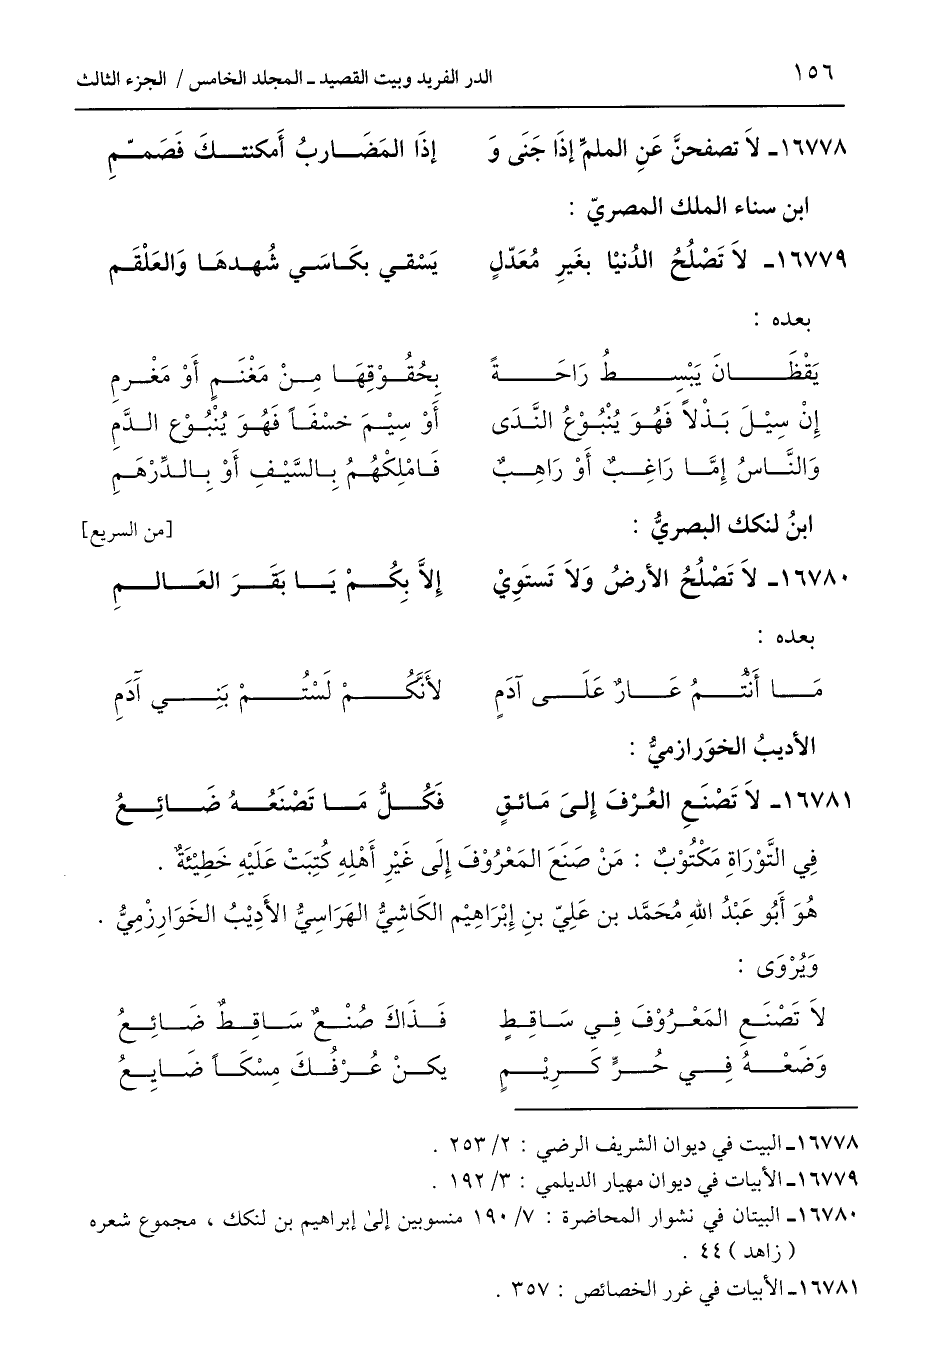 ١٥٦ الدر الفريد وبيت القصيد ـ المجلد الخامس / الجزء الثالث
١٦٧٧٨ـ لاَ تصفحنَّ عَنِ الملمِّ إذَا جَنَى وَ إذَا المَضَاربُ أمكنتكَ فَصَمّمِ
ابن سناء الملك المصريّ :
١٦٧٧٩ـ لاَ تَصْلُحُ الدُنيْا بغَيرِ مُعَدّلٍ يَسْقي بكَاسَي شُهدهَا وَالعَلْقَم
بعده :
يَقْظَانَ يَبْسِطُ رَاحَةً بِحُقُوْقِهَا مِنْ مَغْنَمٍ أوْ مَغْرمِ
إنْ سِيْلَ بَذْلاً فَهُوَ يُنْبُوْعُ النَّدَى أوْ سِيْمَ خسْفَاً فَهُوَ يُنْبُوْع الدَّمِ
وَالنَّاسُ إمَّا رَاغِبٌ أوْ رَاهِبٌ فَامْلِكْهُمُ بِالسَّيْفِ أوْ بِالدِّرْهَمِ
ابنُ لنكك البصريُّ : [من السريع]
١٦٧٨٠ـ لاَ تَصْلُحُ الأرضُ وَلاَ تَستَويْ إلاَّ بكُمْ يَا بَقَرَ العَالمِ
بعده :
مَا أنْتُمُ عَارٌ عَلَى آدَمٍ لأنَّكُمْ لَسْتُمْ بَنِي آدَمِ
الأديبُ الخوَرازميُّ :
١٦٧٨١ـ لاَ تَصْنَعِ العُرْفَ إلىَ مَائقٍ فَكُلُّ مَا تَصْنَعُهُ ضَائِعُ
فِي التَّوْرَاةِ مَكْتُوْبٌ : مَنْ صَنَعَ المَعْرُوْفَ إلَى غَيْرِ أهْلِهِ كُتِبَتْ عَلَيْهِ خَطِيْئَةٌ .
هُوَ أبُو عَبْدُ اللهِ مُحَمَّد بن عَليّ بنِ إبْرَاهِيْم الكَاشيُّ الهَرَاسيُّ الأدِيْبُ الخَوَارِزْميُّ .
وَيُرْوَى :
لاَ تَصْنَعِ المَعْرُوْفَ فِي سَاقِطٍ فَذَاكَ صُنْعٌ سَاقِطٌ ضَائِعُ
وَضَعْهُ فِي حُرٍّ كَرِيْمٍ يكنْ عُرْفُكَ مِسْكَاً ضَايِعُ
١٦٧٧٨ـ البيت في ديوان الشريف الرضي : ٢/ ٢٥٣ .
١٦٧٧٩ـ الأبيات في ديوان مهيار الديلمي : ٣/ ١٩٢ .
١٦٧٨٠ـ البيتان في نشوار المحاضرة : ٧/ ١٩٠ منسوبين إلىٰ إبراهيم بن لنكك ، مجموع شعره
( زاهد ) ٤٤ .
١٦٧٨١ـ الأبيات في غرر الخصائص : ٣٥٧ .